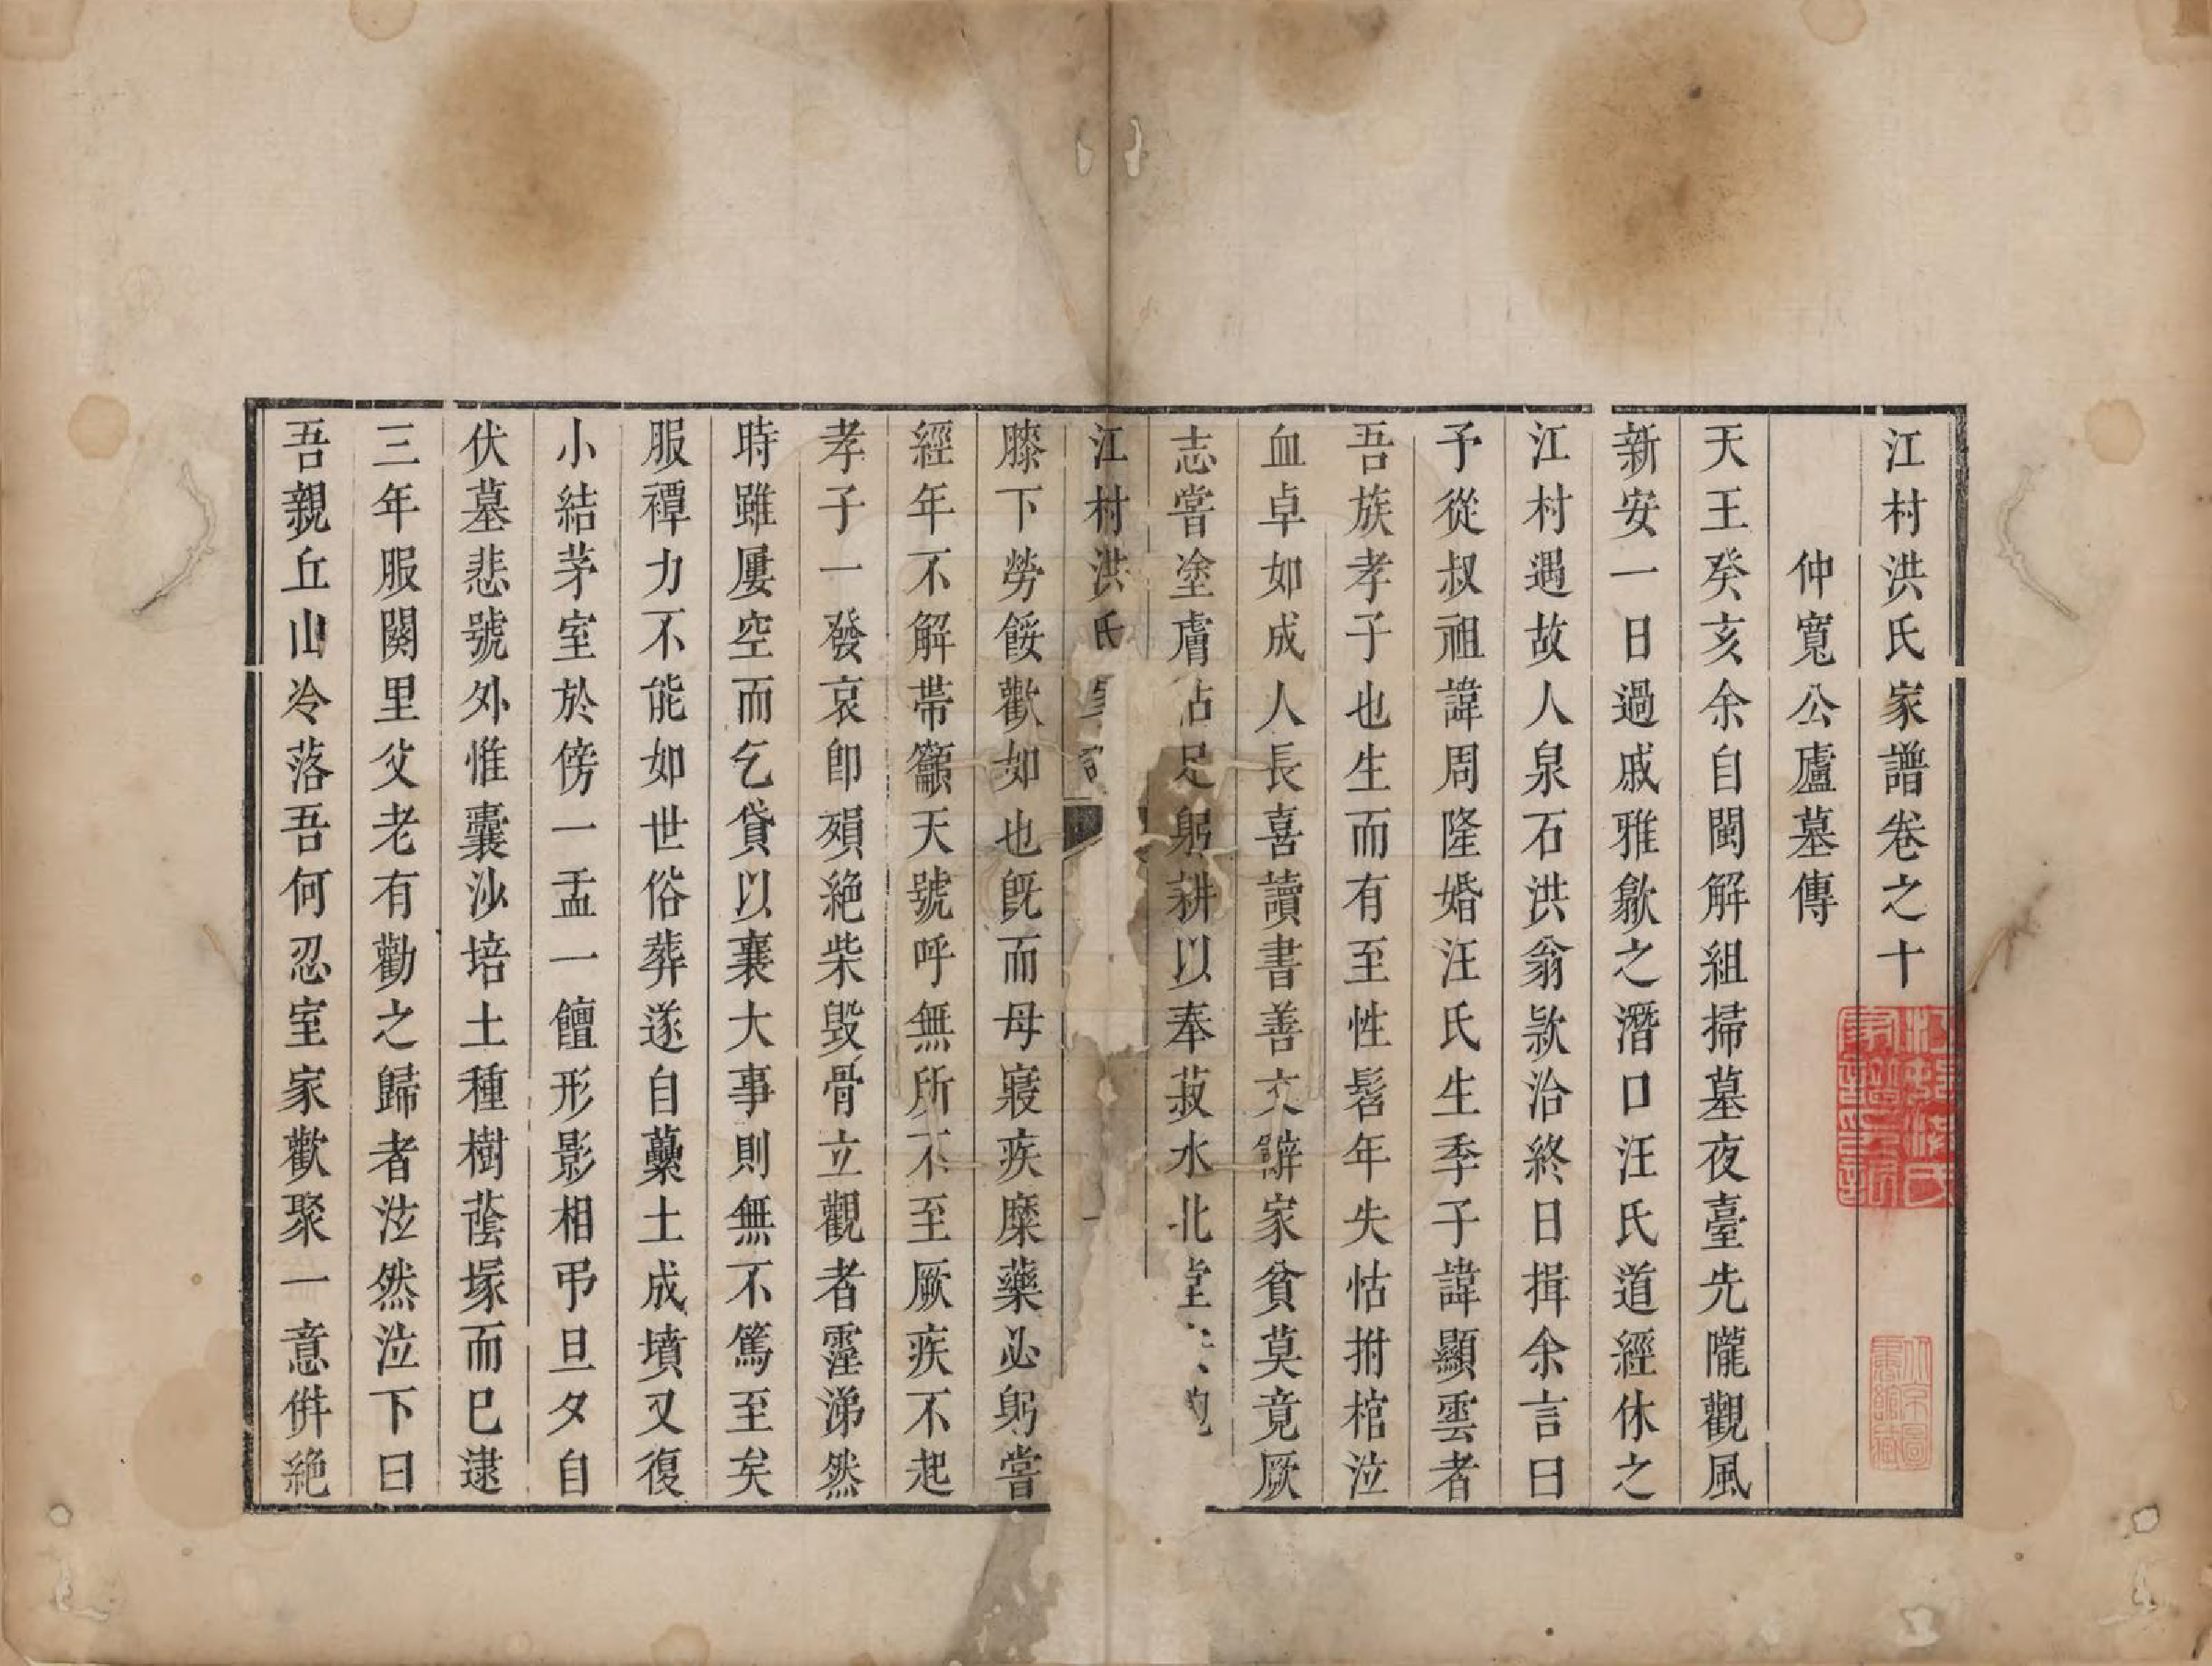 江村洪氏家譜卷之十
仲寬公廬墓傳
天王癸亥余自閩解組掃墓夜臺先隴觀風
新安一日過戚雅歙之潛口汪氏道經休之
江村遇故人泉石洪翁款洽終日揖余言曰
予從叔祖諱周隆婚汪氏生季子諱顯雲者
吾族孝子也生而有至性髫年失怙拊棺泣
血卓如成人長喜讀書善文辭家貧莫竟厥
志嘗塗膚沾足躬耕以奉菽水北堂
江村洪氏家譜 一
膝下勞餒歡如也旣而母寢疾糜藥必躬嘗
經年不解帶籲天號呼無所不至厥疾不起
孝子一發哀卽殞絶柴毀骨立觀者霪涕然
時雖屢空而乞貸以襄大事則無不篤至矣
服禫力不能如世俗葬遂自虆土成墳又復
小結茅室於傍一盂一饘形影相弔旦夕自
伏墓悲號外惟囊沙培土種樹蔭塚而已逮
三年服闋里父老有勸之歸者泫然泣下曰
吾親丘山冷落吾何忍室家歡聚一意倂絶
江村洪氏